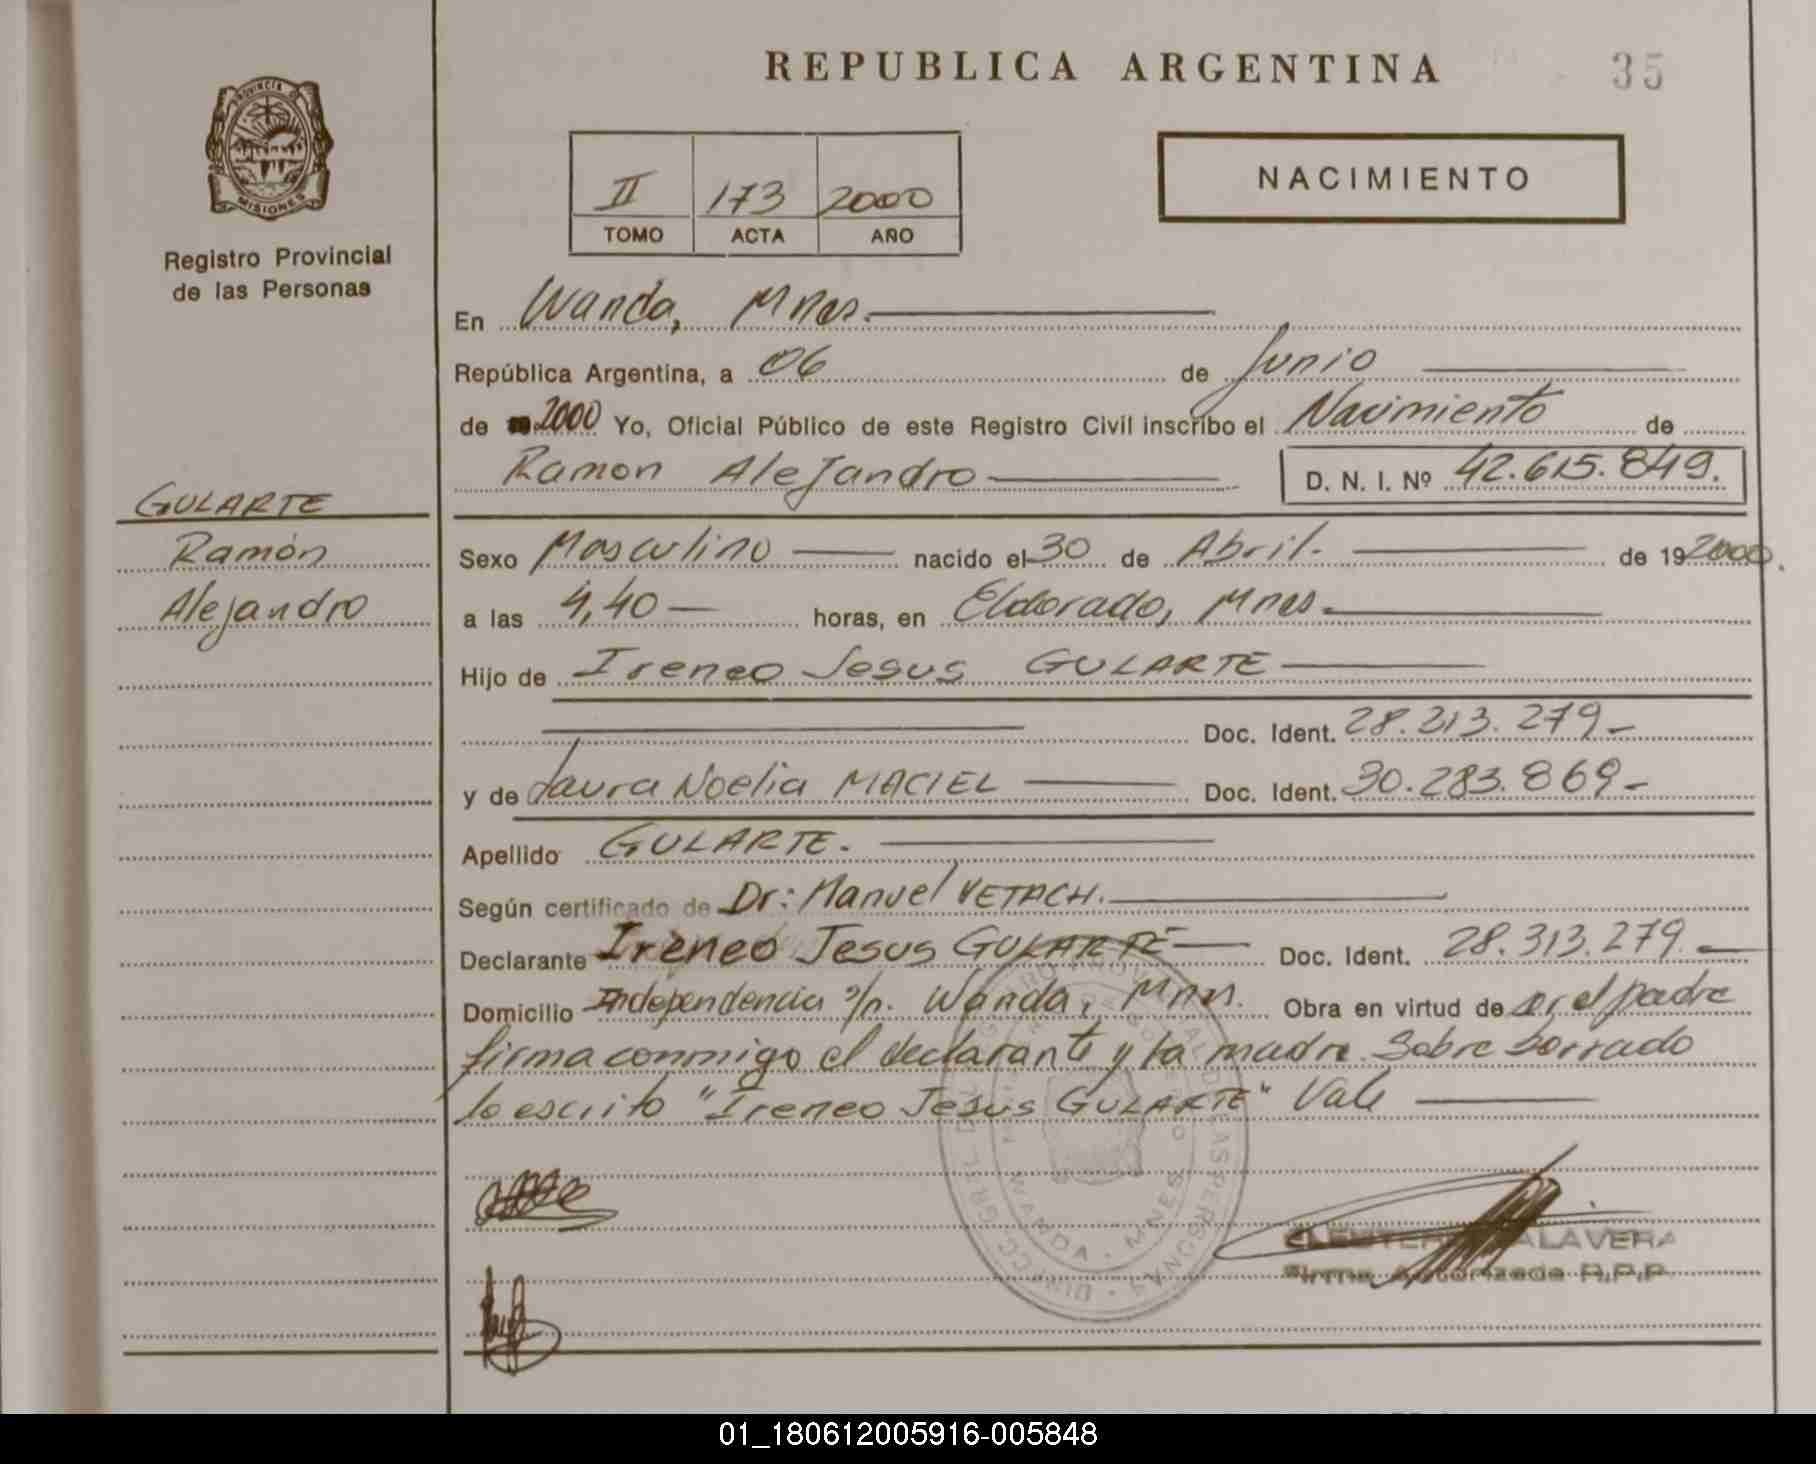 REPUBLICA ARGENTINA
35
PROVINCIA DE
MISIONES
Registro Provincial
de las Personas
II 173 2000
TOMO ACTA AÑO
NACIMIENTO
En Wanda, Mnes.
República Argentina, a 06 de Junio
de 2000 Yo, Oficial Público de este Registro Civil inscribo el Nacimiento de
Ramon Alejandro D. N. I. Nº 42.615.849.
GULARTE
Ramón
Alejandro
Sexo Masculino nacido el 30 de Abril. de 19 2000.
a las 4,40 horas, en Eldorado, Mnes.
Hijo de Ireneo Jesus GULARTE
Doc. Ident. 28.313.279
y de Laura Noelia MACIEL Doc. Ident. 30.283.869
Apellido GULARTE.
Según certificado de Dr: Manuel VETACH.
Declarante Ireneo Jesus GULARTE Doc. Ident. 28.313.279
Domicilio Independencia s/n. Wanda, Mnes. Obra en virtud de ser el padre
firma conmigo el declarante y la madre. Sobre borrado
lo escrito "Ireneo Jesus GULARTE" Vale
WANDA - MNES
TALAVERA
Firma Autorizada R.P.P.
01_180612005916-005848